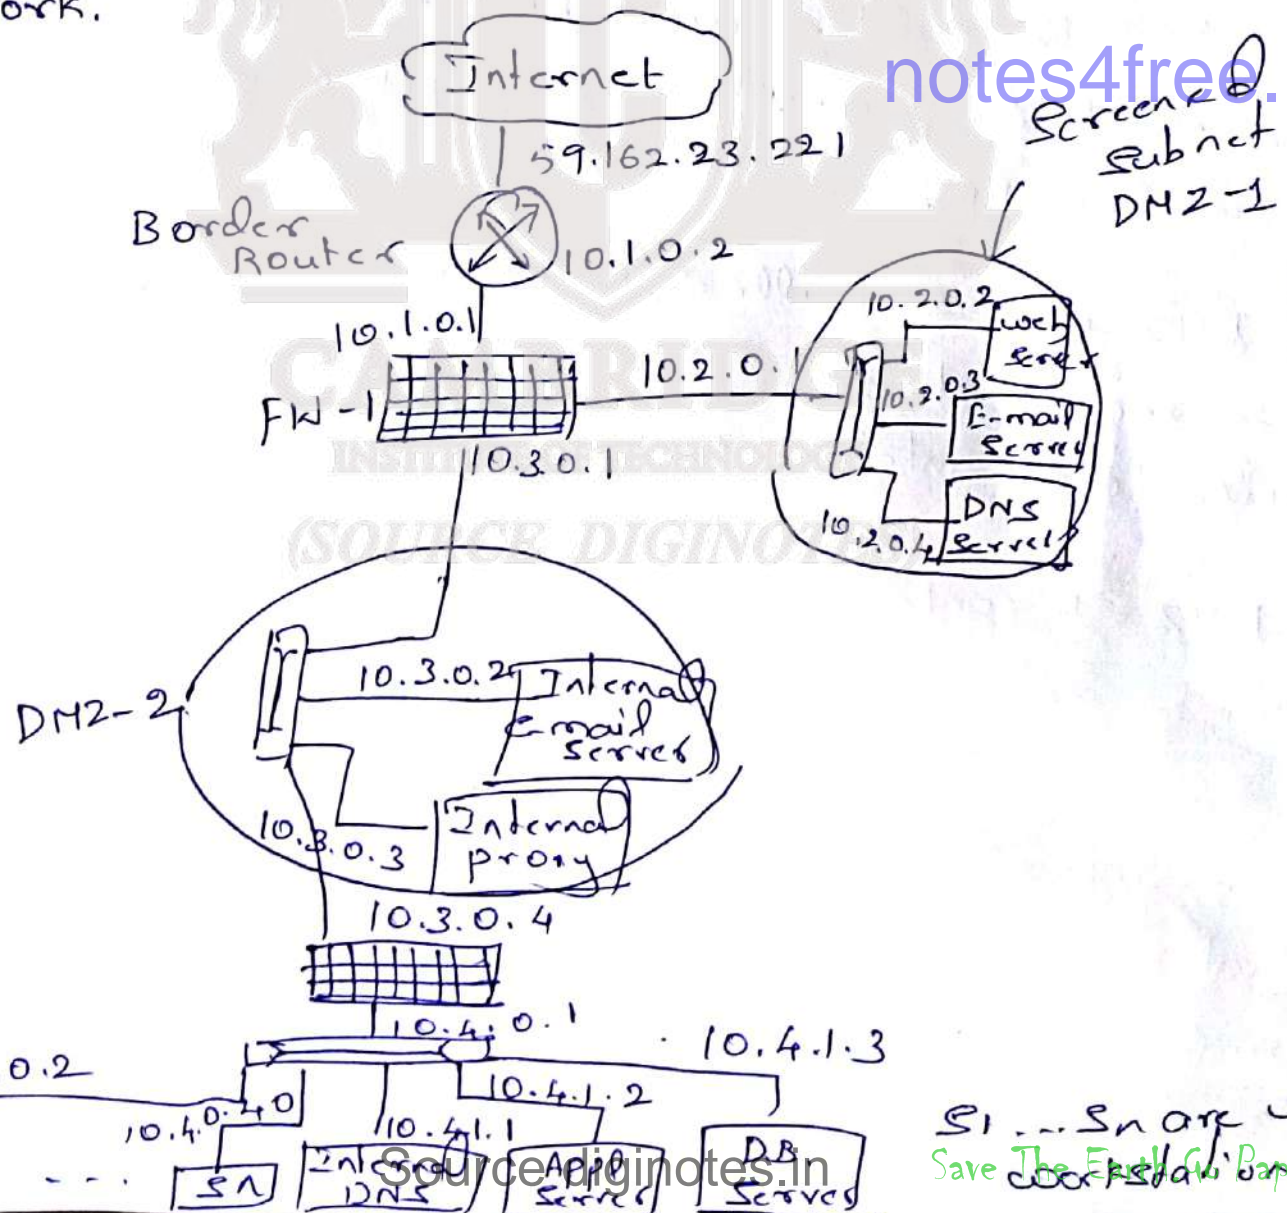 ork.
Internet
notes4free.
Screened
Subnet
DMZ-1
59.162.23.221
Border
Router
10.1.0.2
10.1.0.1
FW-1
10.2.0.1
10.2.0.2
Web
Server
10.2.0.3
E-mail
Server
10.2.0.4
DNS
Server
CAMBRIDGE
INSTITUTE OF TECHNOLOGY
(SOURCE DIGINOTES)
10.3.0.1
DMZ-2
10.3.0.2
Internal
E-mail
Server
10.3.0.3
Internal
proxy
10.3.0.4
10.4.0.1
0.2
10.4.0.40
10.4.1.1
10.4.1.2
10.4.1.3
...
Sn
Internal
DNS
Appn
Server
DB
Server
S1 ... Sn are
workstation
Source diginotes.in
Save The Earth. Go Pap